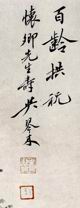 百齡拱祝
懷卿先生壽吳琴木